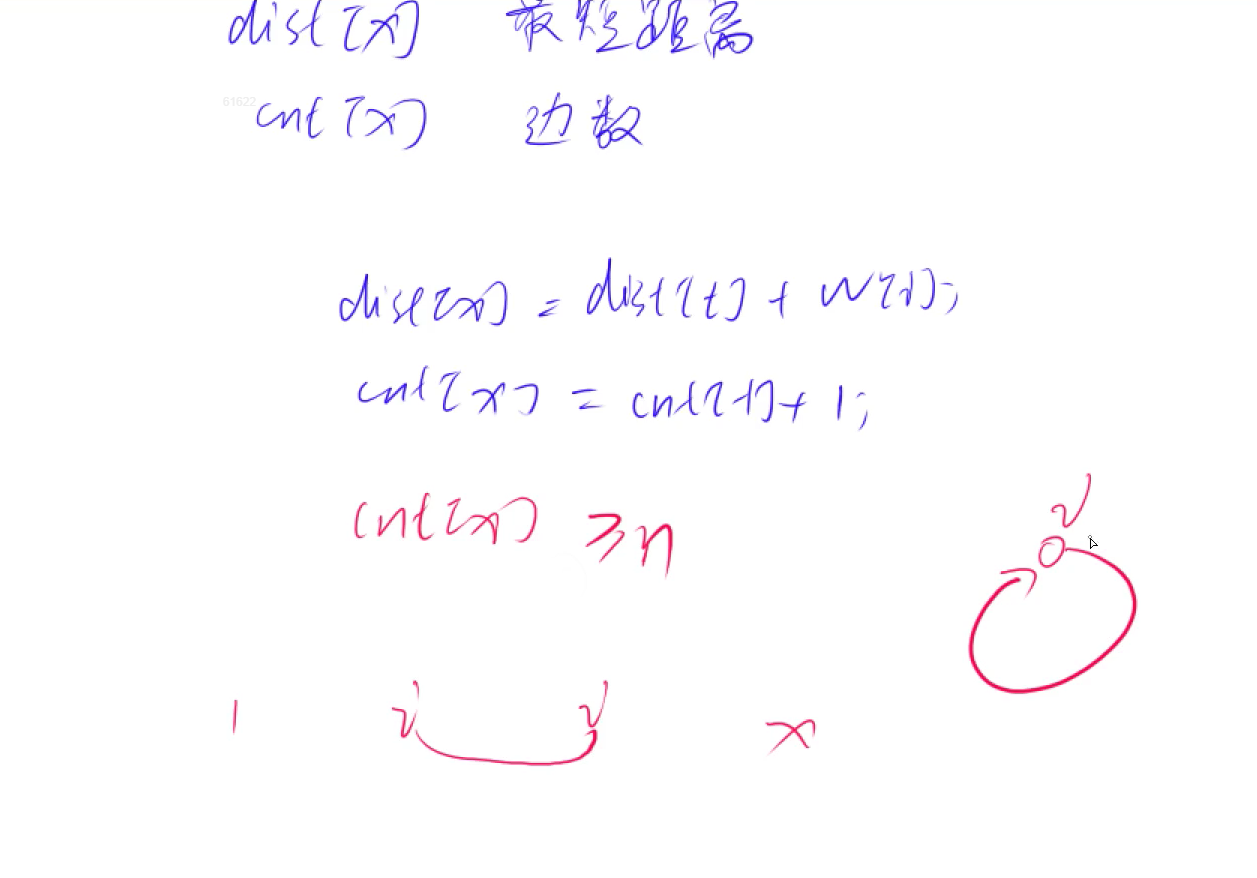 dist[x] 最短距离
61622
cnt[x] 边数
dist[x] = dist[t] + w[i];
cnt[x] = cnt[t] + 1;
cnt[x] ≥ n
i
1 i i x